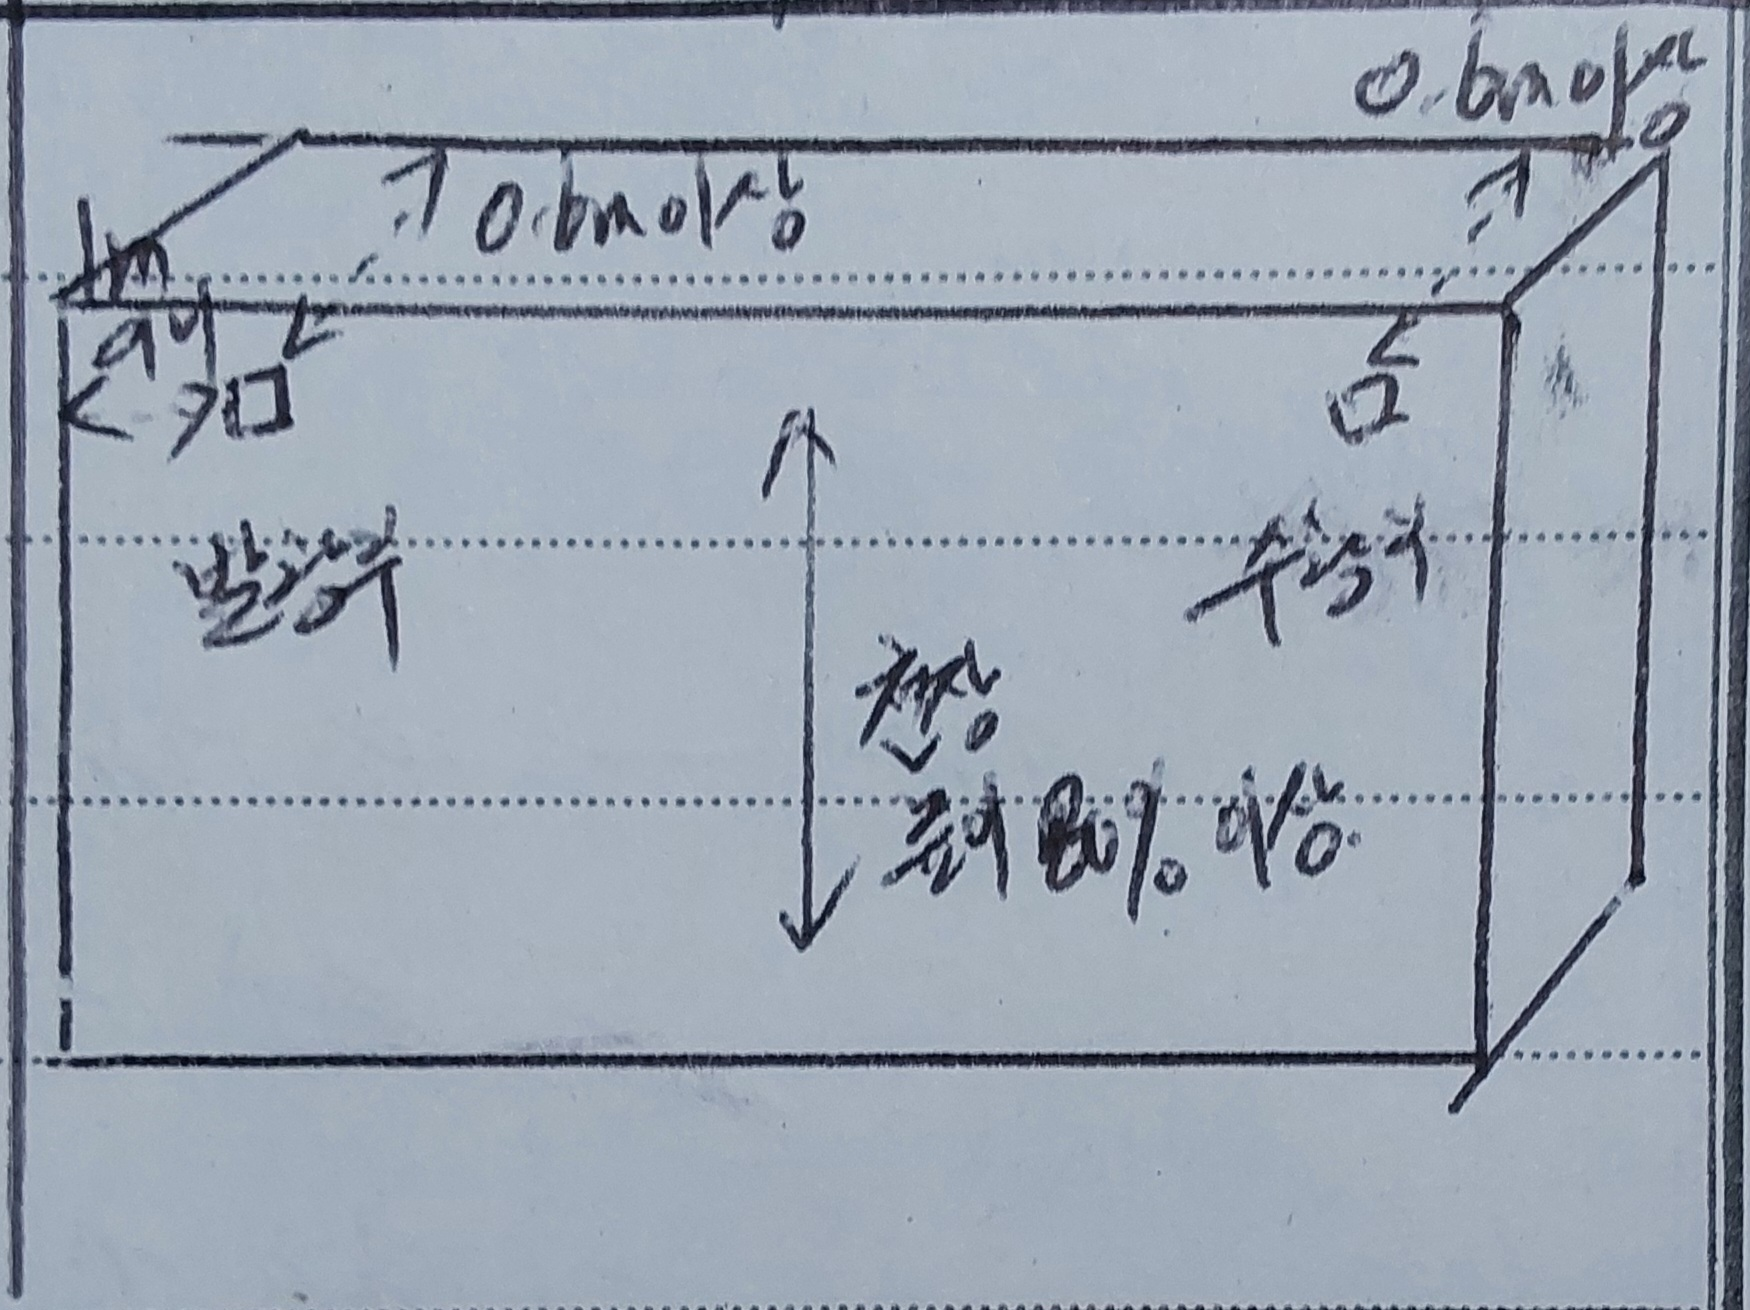 0.6m이상
0.6m이상
1m
이내
발광부
수광부
천장
높이 80% 이상